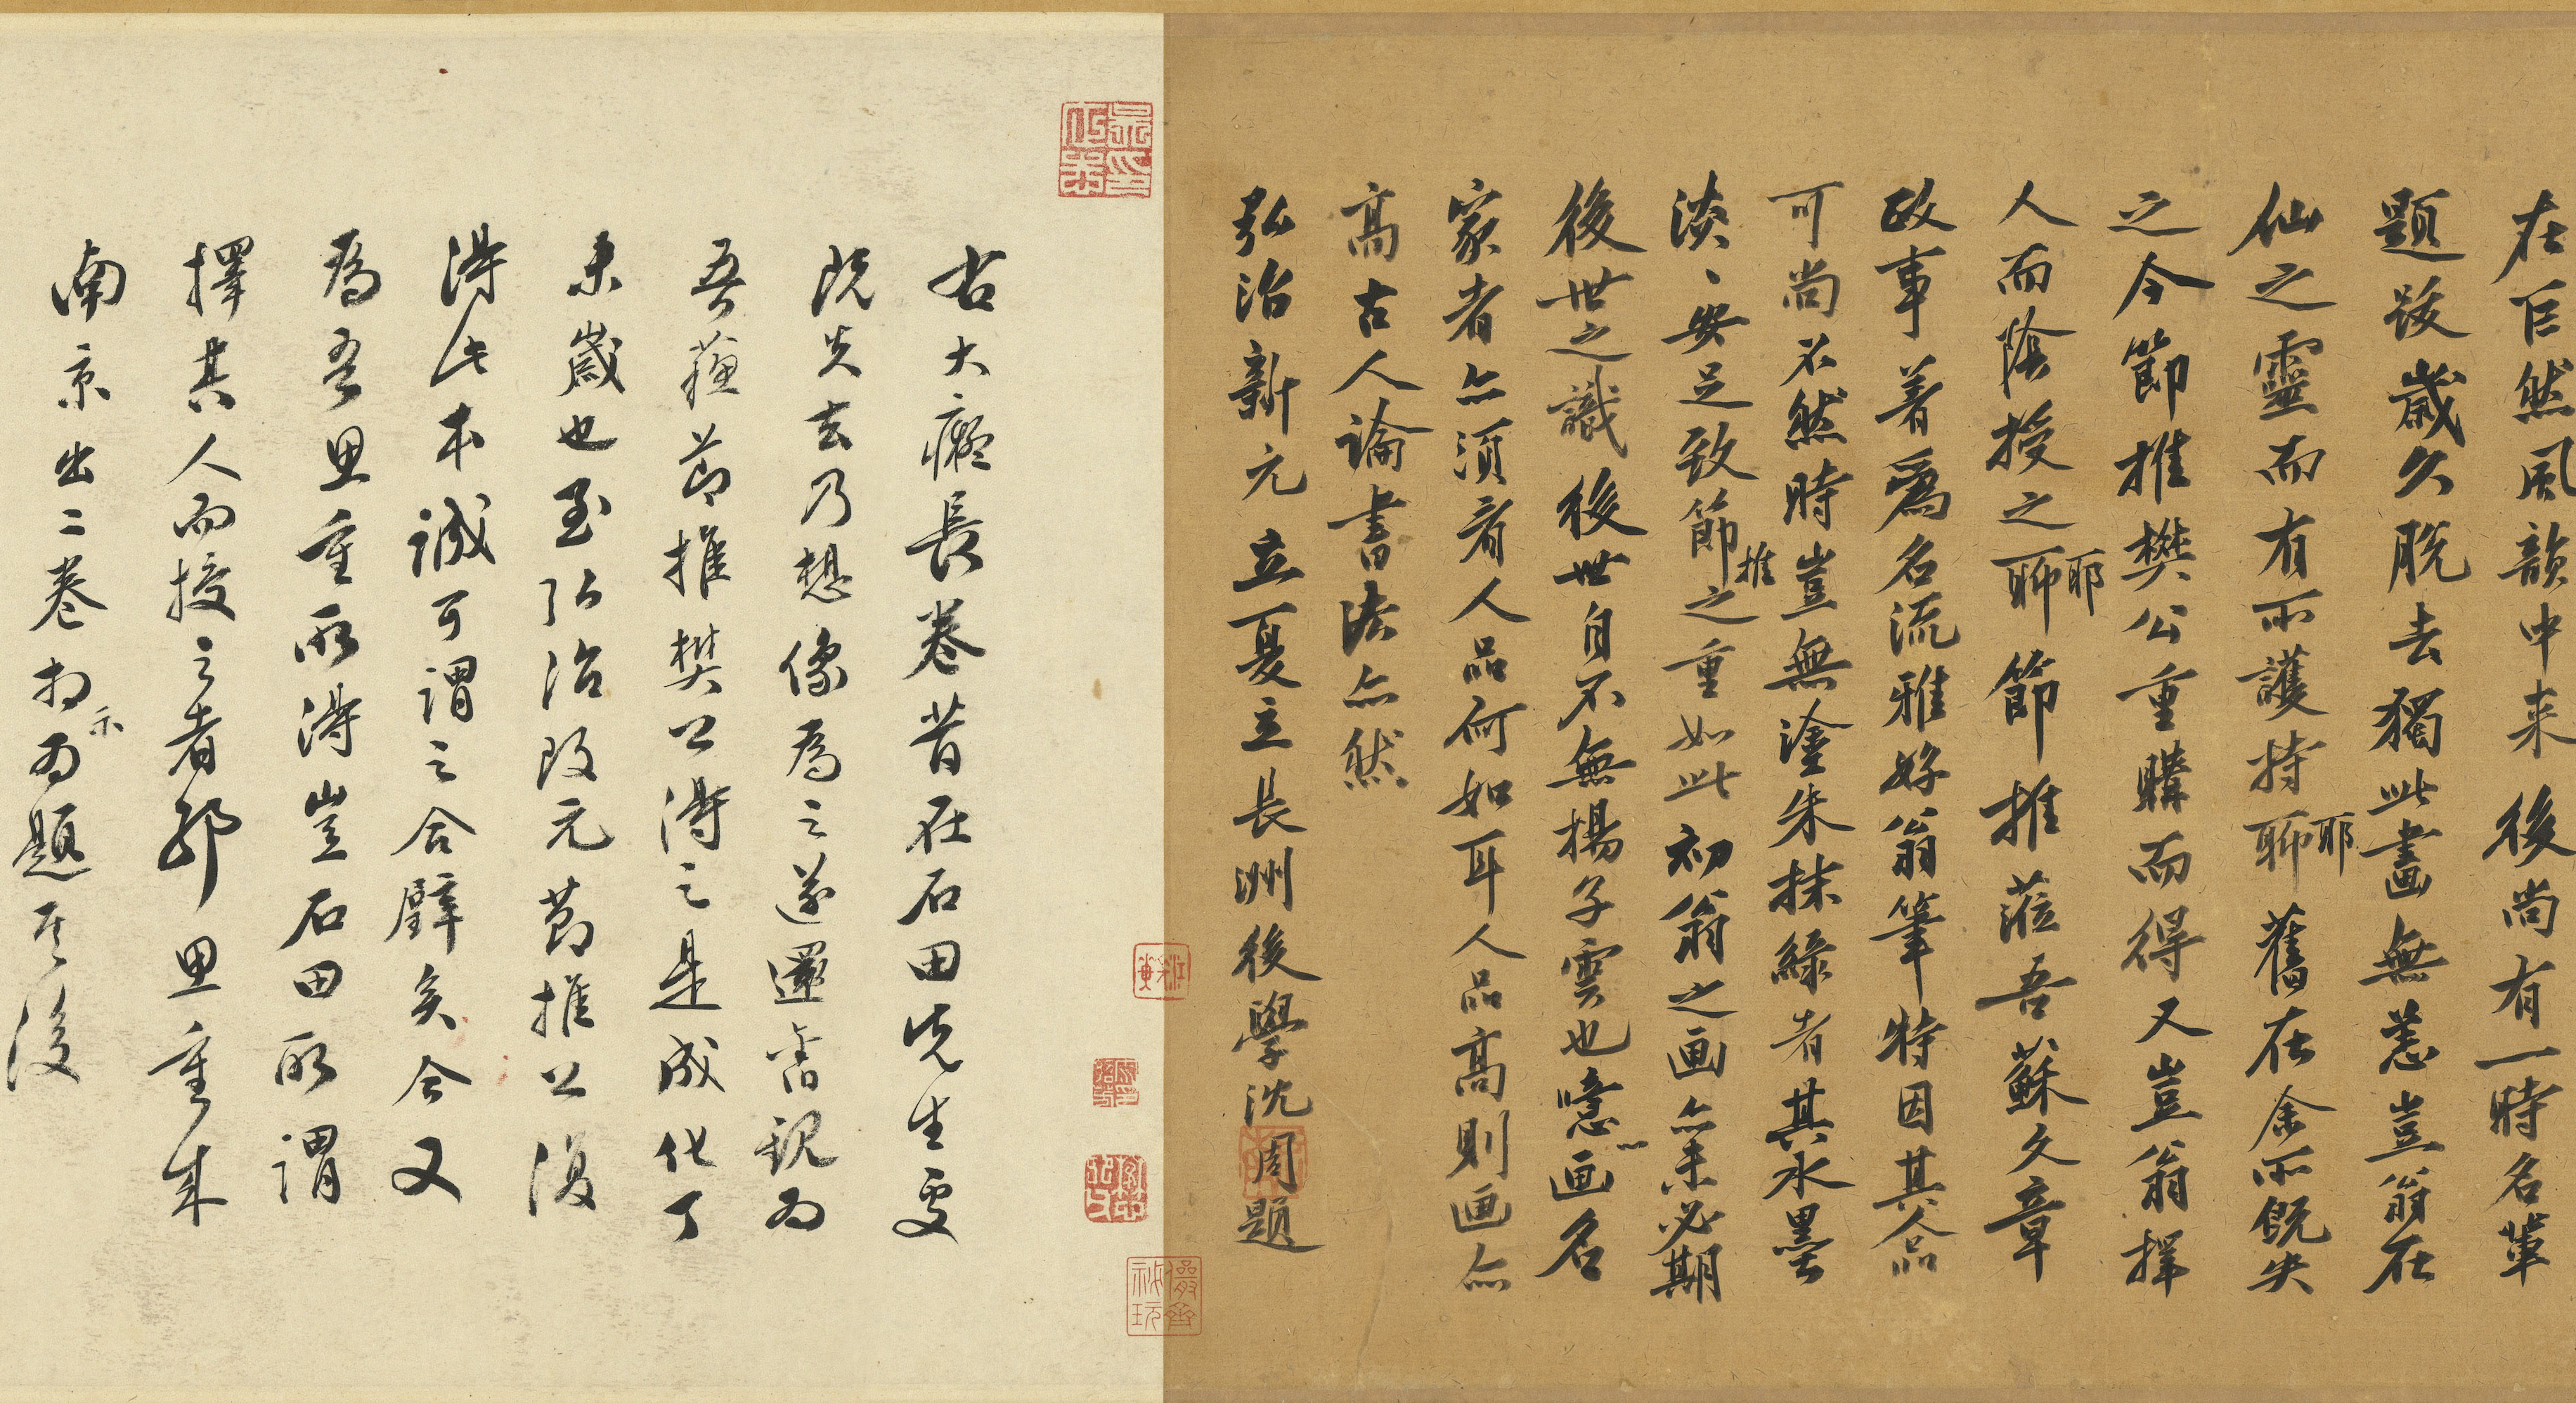 在巨然風韻中来後尚有一時名輩
題跋歲久脫去獨此畫無恙豈翁在
仙之靈而有所護持聊耶舊在余所既失
之今節推樊公重購而得又豈翁擇
人而陰授之聊耶節推蒞吾蘇文章
政事著爲名流雅好翁筆特因其人品
可尚不然時豈無塗朱抹綠者其水墨
淡、安足致節推之重如此初翁之画亦未必期
後世之識後世自不無揚子雲也噫画名
家者亦須看人品何如耳人品高則画亦
高古人論書法亦然
弘治新元立夏立長洲後學沈周題
右大癡長卷昔在石田先生處
既失去乃想像為之遂還舊觀為
吾蘇節推樊公得之是成化丁
未歲也至弘治改元節推公復
得此本誠可謂之合璧矣今又
為吾思重所得豈石田所謂
擇其人而授之者耶思重來
南京出二卷相示為題其後